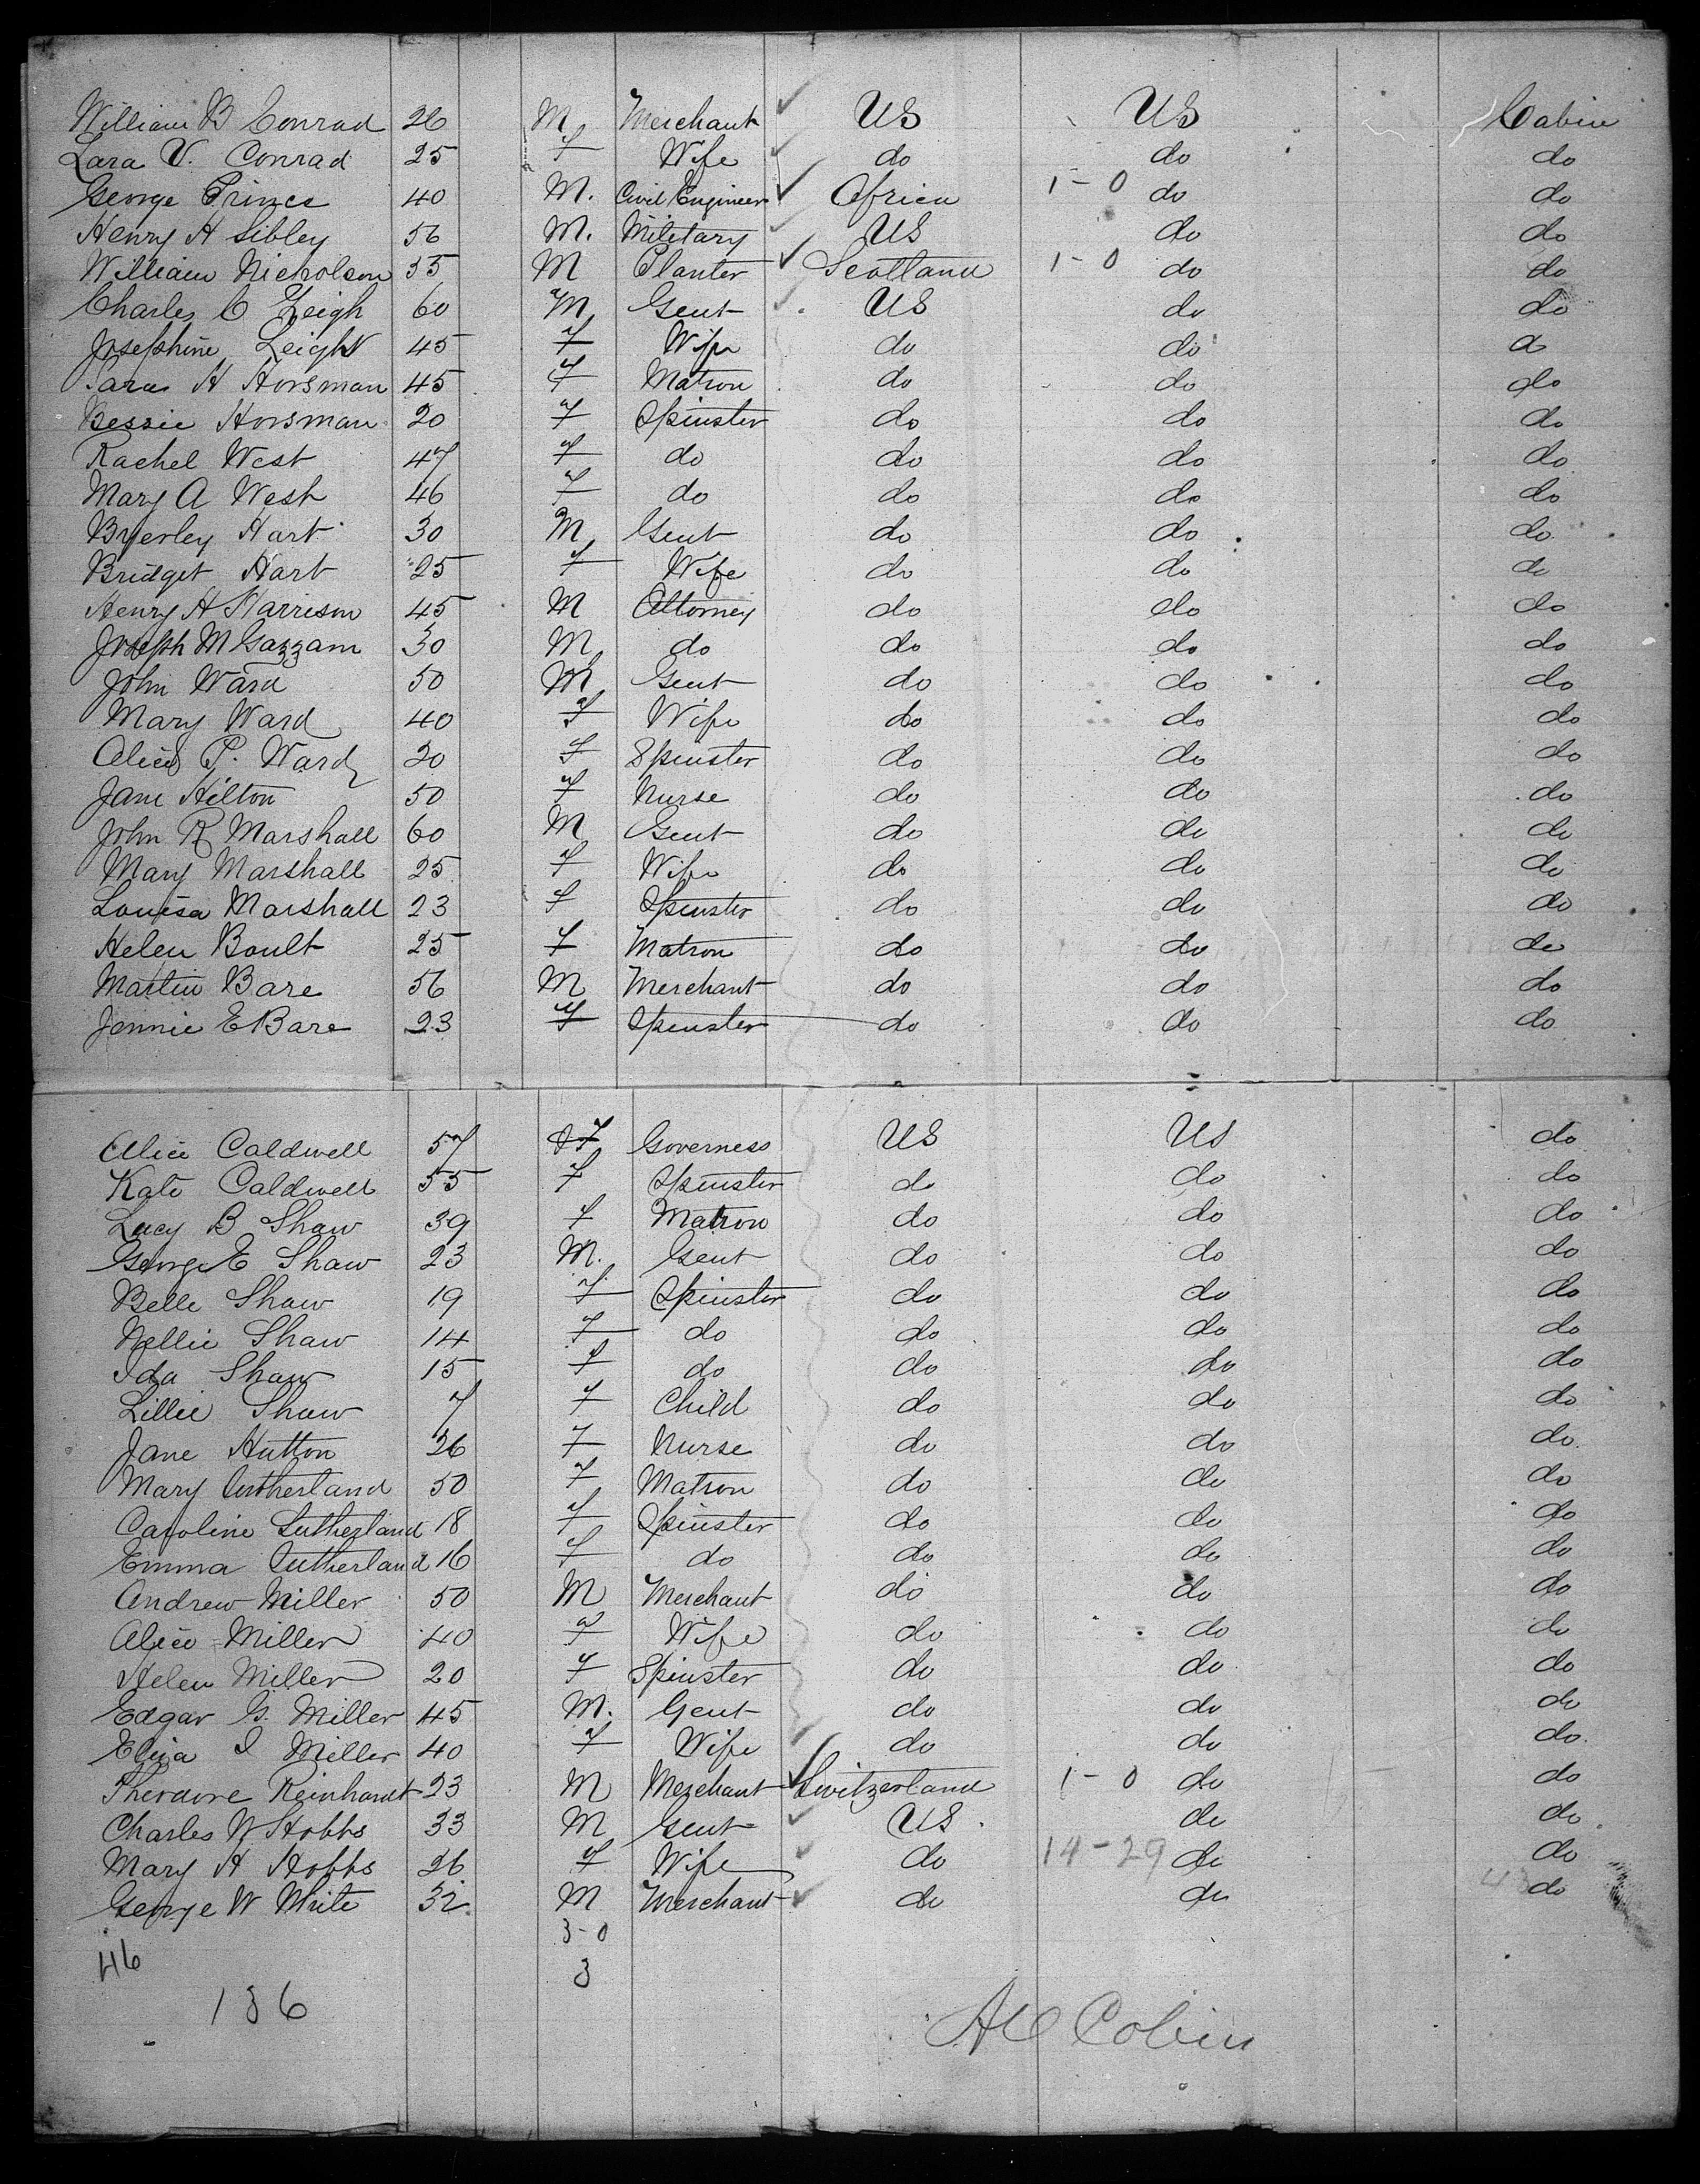 William B Conrad 26 M Merchant US US Cabin
Lara V. Conrad 25 F Wife do do do
George Prince 40 M. Civil Engineer Africa 1-0 do do
Henry H Sibley 56 M. Military US do do
William Nicholson 35 M Planter Scotland 1-0 do do
Charles C Leigh 60 M Gent US do do
Josephine Leigh 45 F Wife do do d
Sara H Horsman 45 F Matron do do do
Bessie Horsman 20 F Spinster do do do
Rachel West 47 F do do do do
Mary A West 46 F do do do do
Bryerley Hart 30 M Gent do do do
Bridget Hart 25 F Wife do do do
Henry H Harrison 45 M Attorney do do do
Joseph M Gazzam 30 M do do do do
John Ward 50 M Gent do do do
Mary Ward 40 F Wife do do do
Alice P. Ward 20 F Spinster do do do
Jane Hilton 50 F Nurse do do do
John R Marshall 60 M Gent do do do
Mary Marshall 25 F Wife do do do
Louisa Marshall 23 F Spinster do do do
Helen Boult 25 F Matron do do do
Martin Bare 56 M Merchant do do do
Jennie E Bare 23 F Spinster do do do
Alice Caldwell 57 F Governess US US do
Kate Caldwell 55 F Spinster do do do
Lucy B Shaw 39 F Matron do do do
George E Shaw 23 M. Gent do do do
Belle Shaw 19 F Spinster do do do
Nellie Shaw 14 F do do do do
Ida Shaw 15 F do do do do
Lillie Shaw 7 F Child do do do
Jane Hutton 26 F Nurse do do do
Mary Sutherland 50 F Matron do do do
Caroline Sutherland 18 F Spinster do do do
Emma Sutherland 16 F do do do do
Andrew Miller 50 M Merchant do do do
Alice Miller 40 F Wife do do do
Helen Miller 20 F Spinster do do do
Edgar G. Miller 45 M. Gent do do do
Eliza I Miller 40 F Wife do do do
Theodore Reinhardt 23 M Merchant Switzerland 1-0 do do
Charles W Hobbs 33 M Gent US do do
Mary H Hobbs 26 F Wife do 14-29 do do
George W White 32 M Merchant do do 43 do
3-0
46 3
186